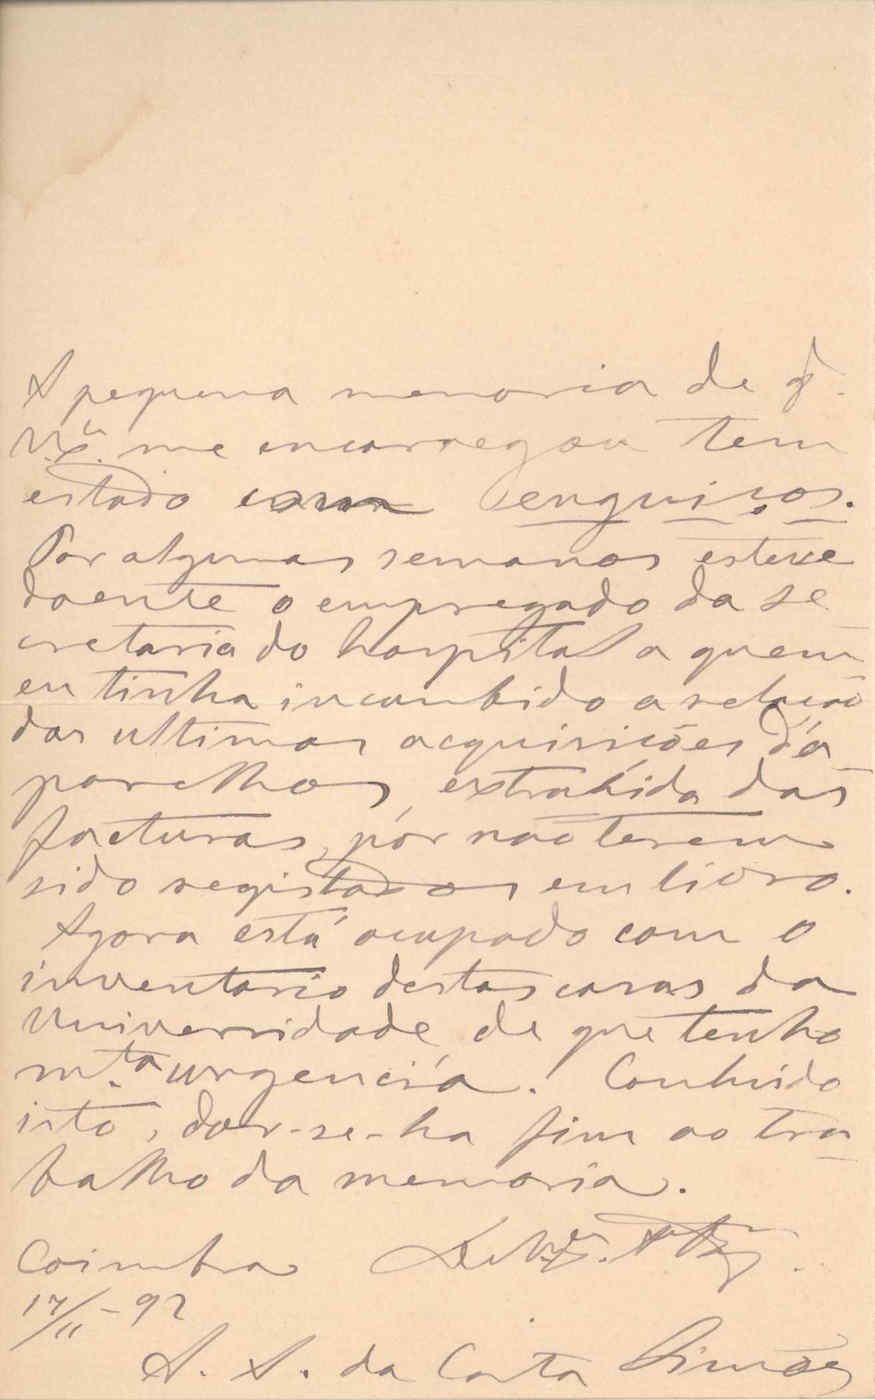 A pequena memoria de q.
V. Ex.ª me encarregou tem
estado com enguiços.
Por algumas semanas esteve
doente o empregado da se
cretaria do hospital a quem
eu tinha incumbido a relação
das ultimas acquisições d'a
parelhos, extrahida das
facturas, por não terem
sido registados em livro.
Agora está occupado com o
inventario destas casas da
Universidade de que tenho
m.ta urgencia. Concluido
isto, dar-se-ha fim ao tra
balho da memoria.
Coimbra De V. Ex.ª
17/11-92
A. A. da Costa Simões